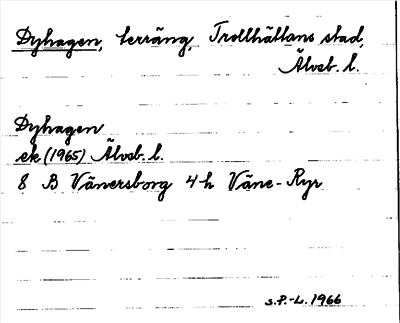 Dyhagen, terräng, Trollhättans stad,
Älvsb. l.
Dyhagen
ek (1965) Älvsb. l.
8 B Vänersborg 4 h Väne-Ryr
S.P.-L. 1966